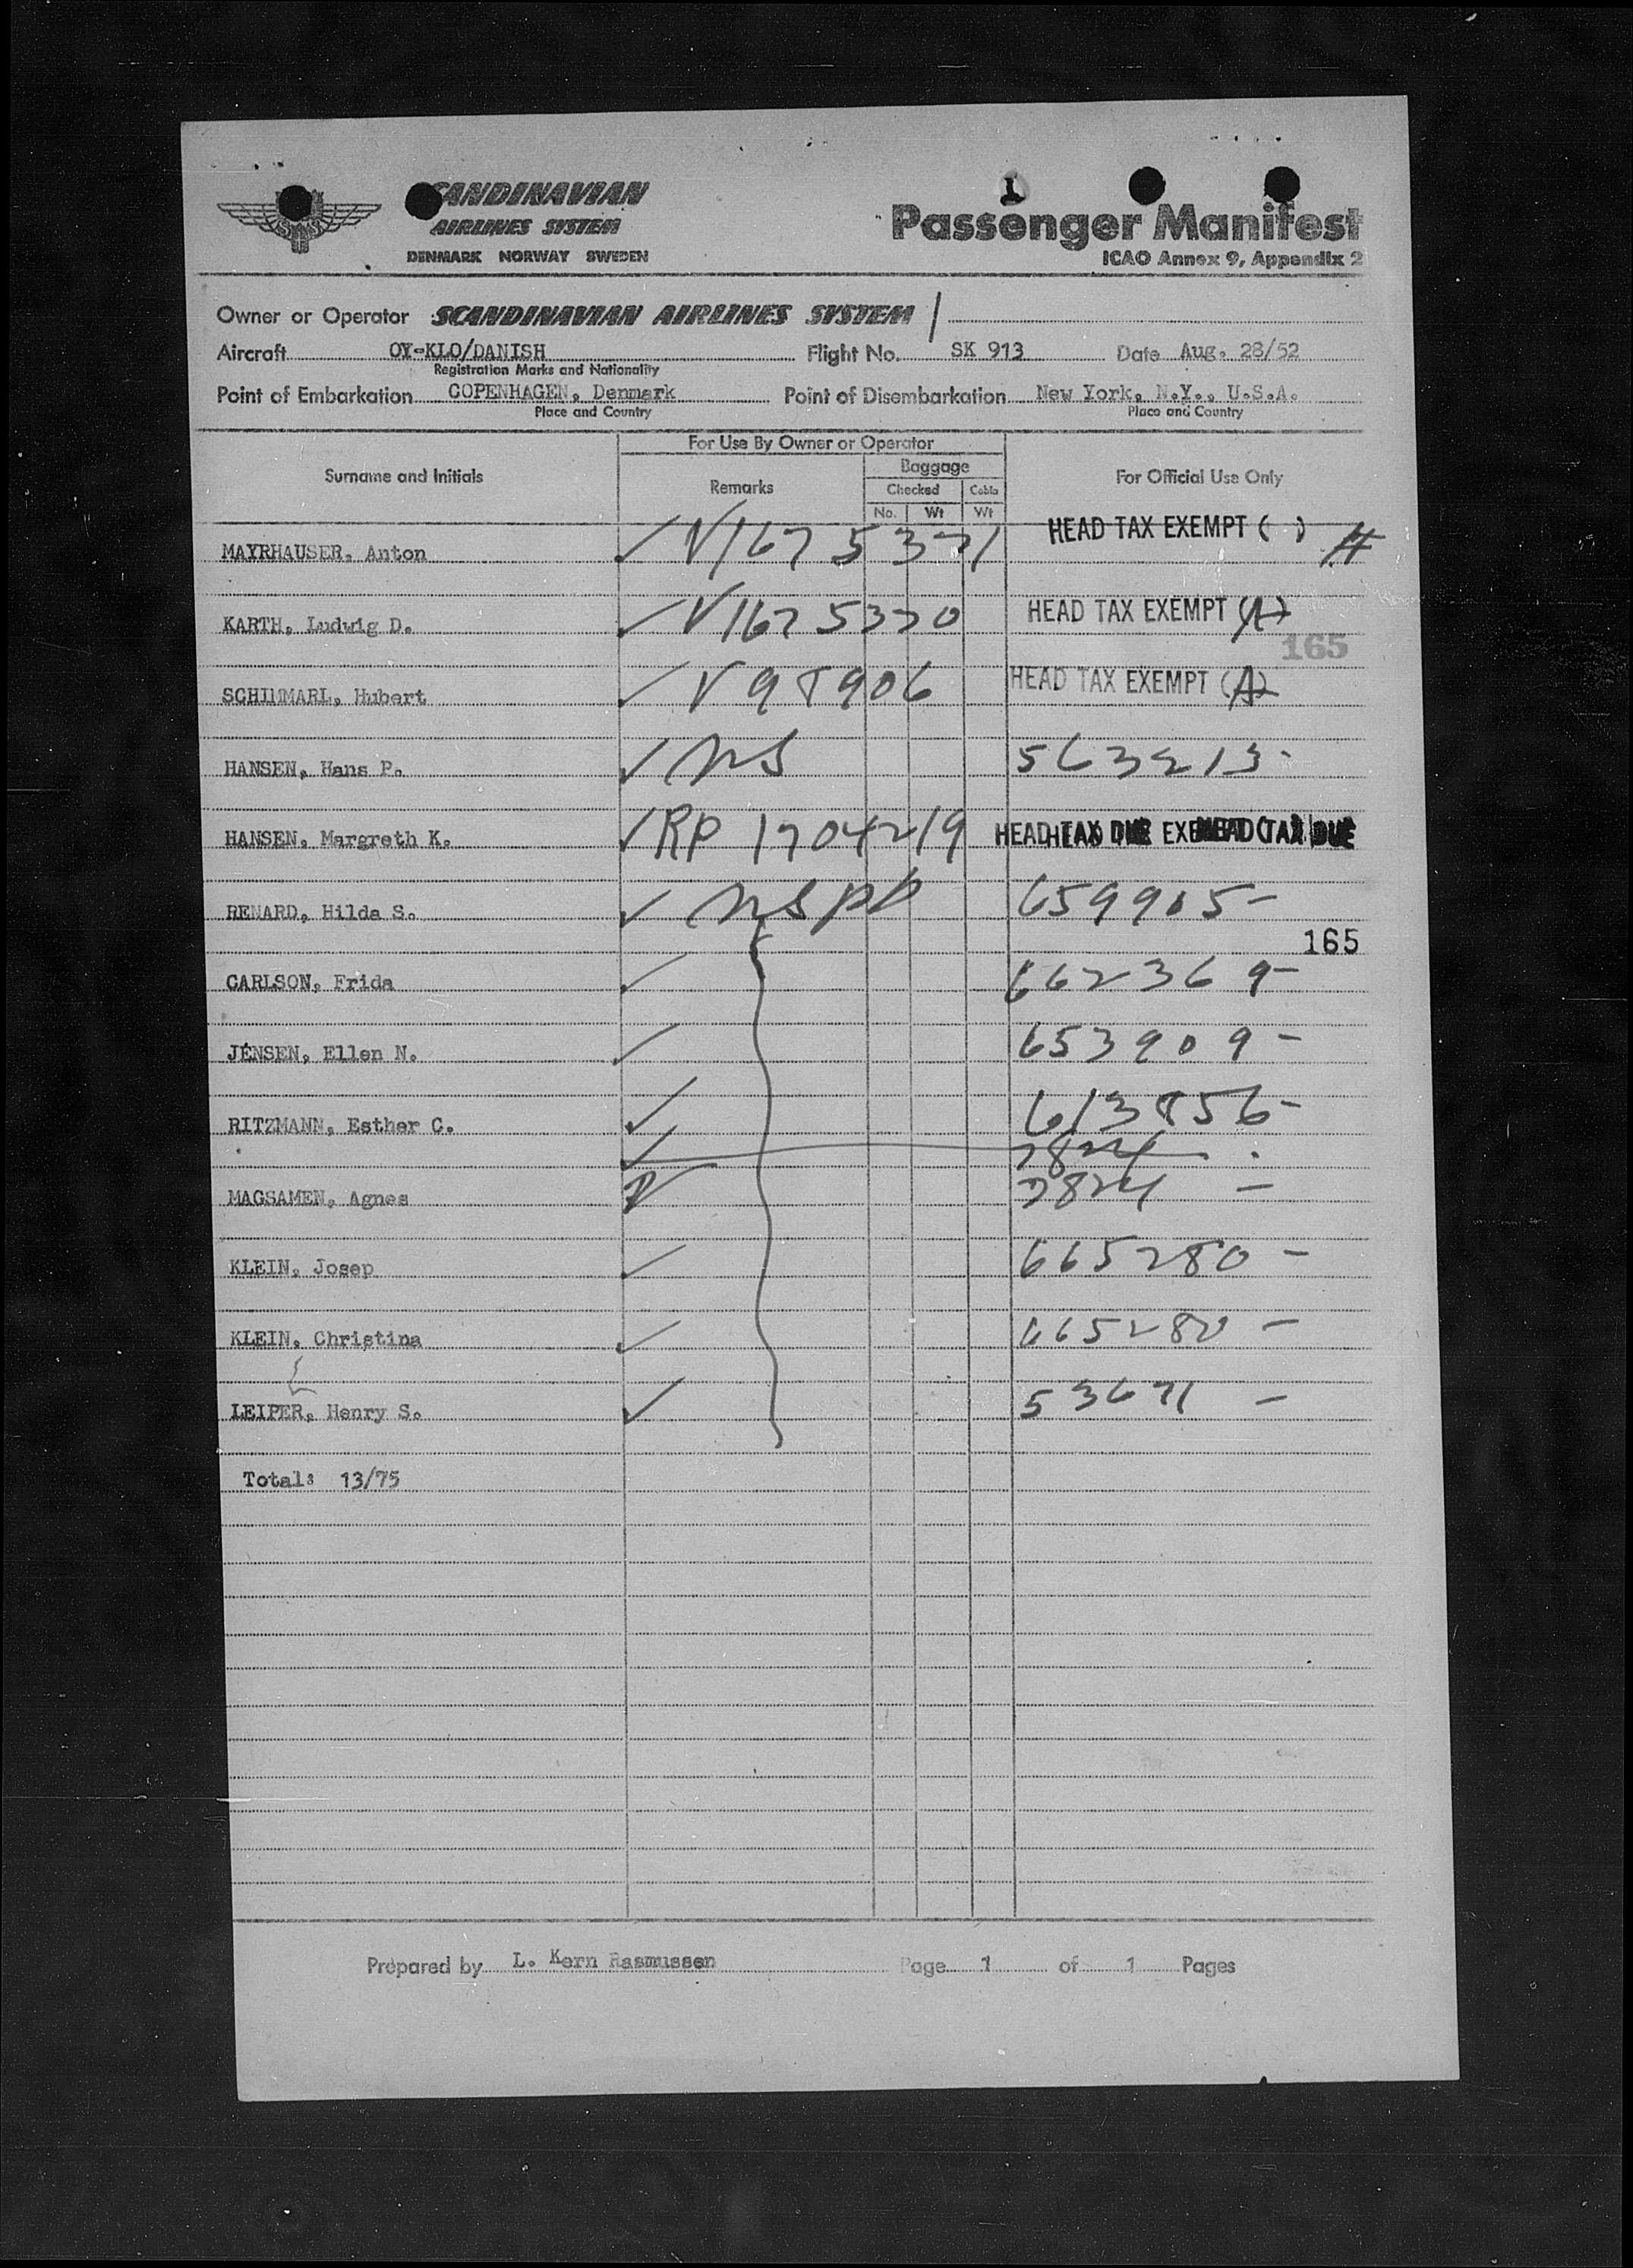 1
SCANDINAVIAN
AIRLINES SYSTEM
DENMARK NORWAY SWEDEN
Passenger Manifest
ICAO Annex 9, Appendix 2
Owner or Operator SCANDINAVIAN AIRLINES SYSTEM
Aircraft OY-KLO/DANISH Flight No. SK 913 Date Aug. 28/52
Registration Marks and Nationality
Point of Embarkation COPENHAGEN, Denmark Point of Disembarkation New York, N.Y., U.S.A.
Place and Country Place and Country
For Use By Owner or Operator
Surname and Initials Remarks Baggage For Official Use Only
Checked Cabin
No. Wt Wt
MAYRHAUSER, Anton ✓ V1675371 HEAD TAX EXEMPT ( )
KARTH, Ludwig D. ✓ V1675370 HEAD TAX EXEMPT (A)
165
SCHIMMARL, Hubert ✓ V98906 HEAD TAX EXEMPT (A)
HANSEN, Hans P. ✓ ns 563213-
HANSEN, Margreth K. ✓ RP 1704219 HEAD TAX DUE
RENARD, Hilda S. ✓ ns pp 659905-
165
CARLSON, Frida ✓ 662369-
JENSEN, Ellen N. ✓ 653909-
RITZMANN, Esther C. ✓ 613856-
✓ 7824
MAGSAMEN, Agnes 7824 -
KLEIN, Josep ✓ 665280-
KLEIN, Christina ✓ 665280-
LEIPER, Henry S. ✓ 53671 -
Total: 13/75
Prepared by L. Kern Rasmussen Page 1 of 1 Pages